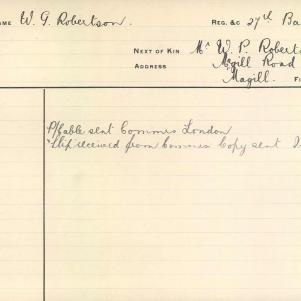 NAME W. G. Robertson. REG. &C 27th Ba
NEXT OF KIN Mr W. P. Roberts
ADDRESS Magill Road
Magill. F
P/Cable sent Commrs London
Slip received from Commrs Copy sent